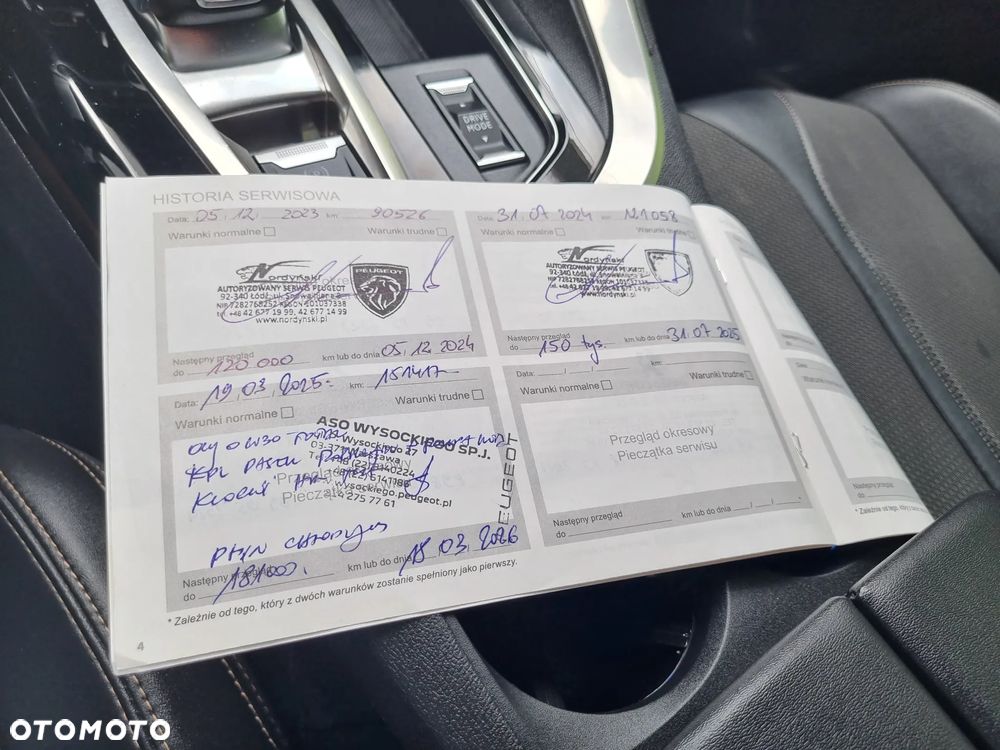 DRIVE
MODE
HISTORIA SERWISOWA
Data: 05. 12. 2023 km: 90526
Warunki normalne Warunki trudne
Nordyński
AUTORYZOWANY SERWIS PEUGEOT
92-340 Łódź, ul.
NIP 7282768252 REGON 101037338
tel. +48 42 677 19 99, 42 677 14 99
www.nordynski.pl
PEUGEOT
Następny przegląd
do 120 000 km lub do dnia 05. 12. 2024
Data: 31. 07 2024 km: 121058
Warunki normalne Warunki trudne
Nordyński
AUTORYZOWANY SERWIS PEUGEOT
92-340 Łódź, ul.
NIP 7282768252 REGON 101037338
tel. +48 42 677 19 99, 42 677 14 99
www.nordynski.pl
Następny przegląd
do 150 tys. km lub do dnia 31. 07. 2025
Data: 19. 03. 2025 km: 151417
Warunki normalne Warunki trudne
ASO WYSOCKI
SP.J.
Wysockiego
Warszawa
wysockiego.peugeot.pl
PEUGEOT
KPL PASEK
PŁYN
Następny przegląd
do 181000. km lub do dnia 18. 03. 2026
Data: / / km:
Warunki normalne Warunki trudne
Przegląd okresowy
Pieczątka serwisu
Następny przegląd
do km lub do dnia / /
* Zależnie od tego, który z dwóch warunków zostanie spełniony jako pierwszy.
4
Data:
Warunki
Następny
do
* Zależnie od tego, który z
OTOMOTO